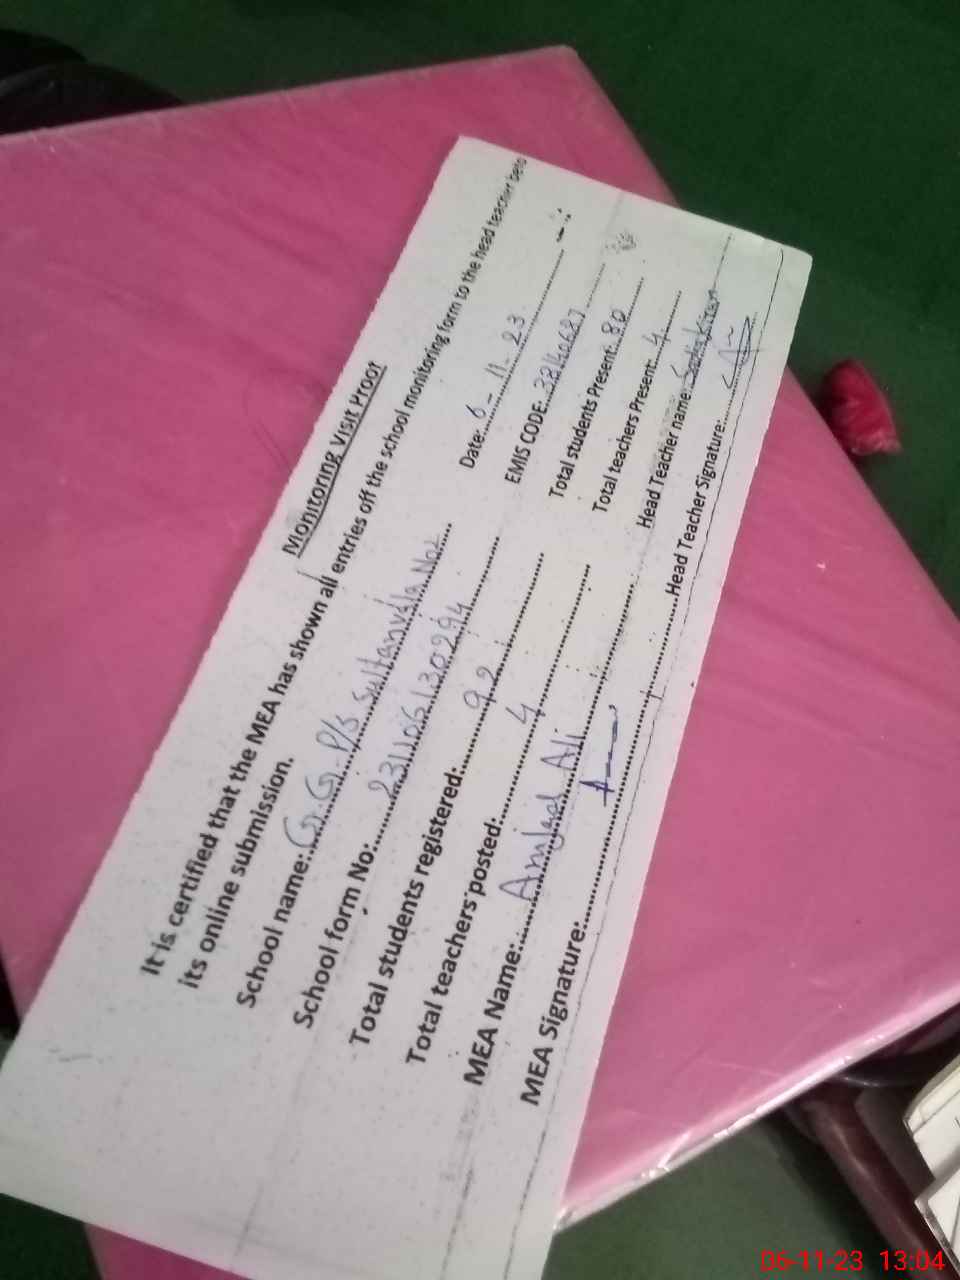 Monitoring Visit Proof
It is certified that the MEA has shown all entries off the school monitoring form to the head teacher befo
its online submission.
School name:..G.G.P/S Sultanwala No2... Date:..6-11-23
School form No:...231106130294... EMIS CODE:.38140687
Total students registered:...92... Total students Present:.80
Total teachers posted:...4... Total teachers Present:.4
MEA Name:...Amjad Ali... Head Teacher name:.Sadia Kiran
MEA Signature:... Head Teacher Signature:...
06-11-23 13:04